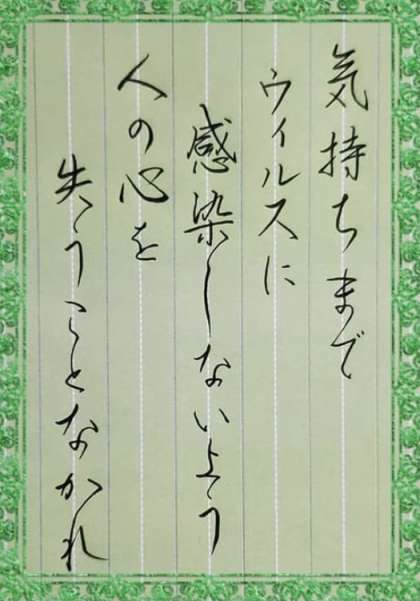 気持ちまで
ウイルスに
感染しないよう
人の心を
失うことなかれ